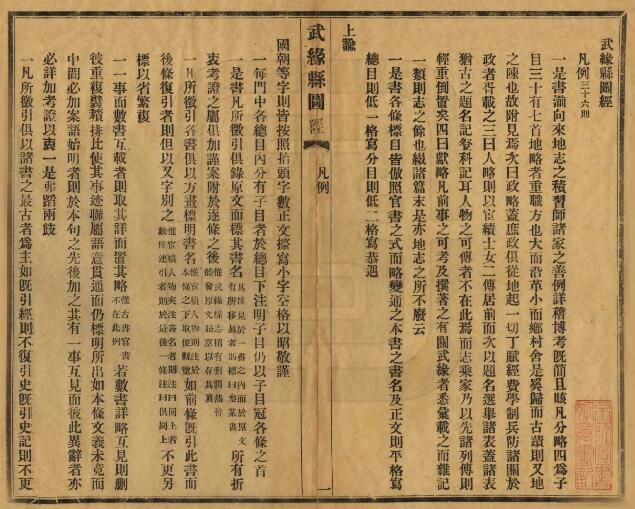 武緣縣圖經
凡例三十六則
一是書湔向來地志之積習師諸家之善例詳稽博考旣簡且賅凡分略四爲子
目三十有七首地略者重職方也大而沿革小而鄉村舍是奚歸而古蹟則又地
之陳也故附見焉次曰政略蓋庶政俱從地起一切丁賦經費學制兵防諸關於
政者胥載之三曰人略則以宦績士女二傳居前而次以題名選舉諸表蓋諸表
猶古之題名記登科記耳人物之可傳者不在此焉而志乘家乃以先諸列傳則
輕重倒置矣四曰獻略凡前事之可考及撰著之有關武緣者悉彙載之而雜記
一類則志之餘也綴諸篇末是亦地志之所不廢云
一是書各條標目皆倣照官書之式而略變通之本書之書名及正文則平格寫
總目則低一格寫分目則低二格寫恭遇
上諭
國朝等字則皆按照抬頭字數正文擡寫小字空格以昭敬謹
一每門中各總目內分有子目者於總目下注明子目仍以子目冠各條之首
一是書凡所徵引俱錄原文而標其書名 所有折
衷考證之屬俱加謹案附於逐條之後
一凡所徵引各書俱以方蓋標明書名 如前條旣引此書而
後條復引者則但以又字別之 不更另
標以省繁複
一一事而數書互載者則取其詳而置其略 若數書詳略互見則刪
彼重複襞積排比使其事迹聯屬語意貫通而仍標明所出如本條文義未竟而
中間必加案語始明者則於本句之先後加之其有一事互見而彼此異辭者亦
必詳加考證以衷一是弗蹈兩歧
一凡所徵引俱以諸書之最古者爲主如旣引經則不復引史旣引史記則不更
武緣縣圖經
凡例
一